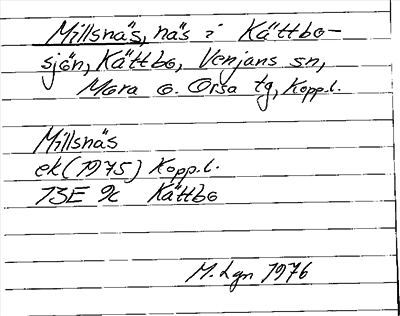 Millsnäs, näs i Kättbo-
sjön, Kättbo, Venjans sn,
Mora o. Orsa tg, Kopp.l.
Millsnäs
ek (1975) Kopp.l.
13E 9c Kättbo
M. Lgn 1976